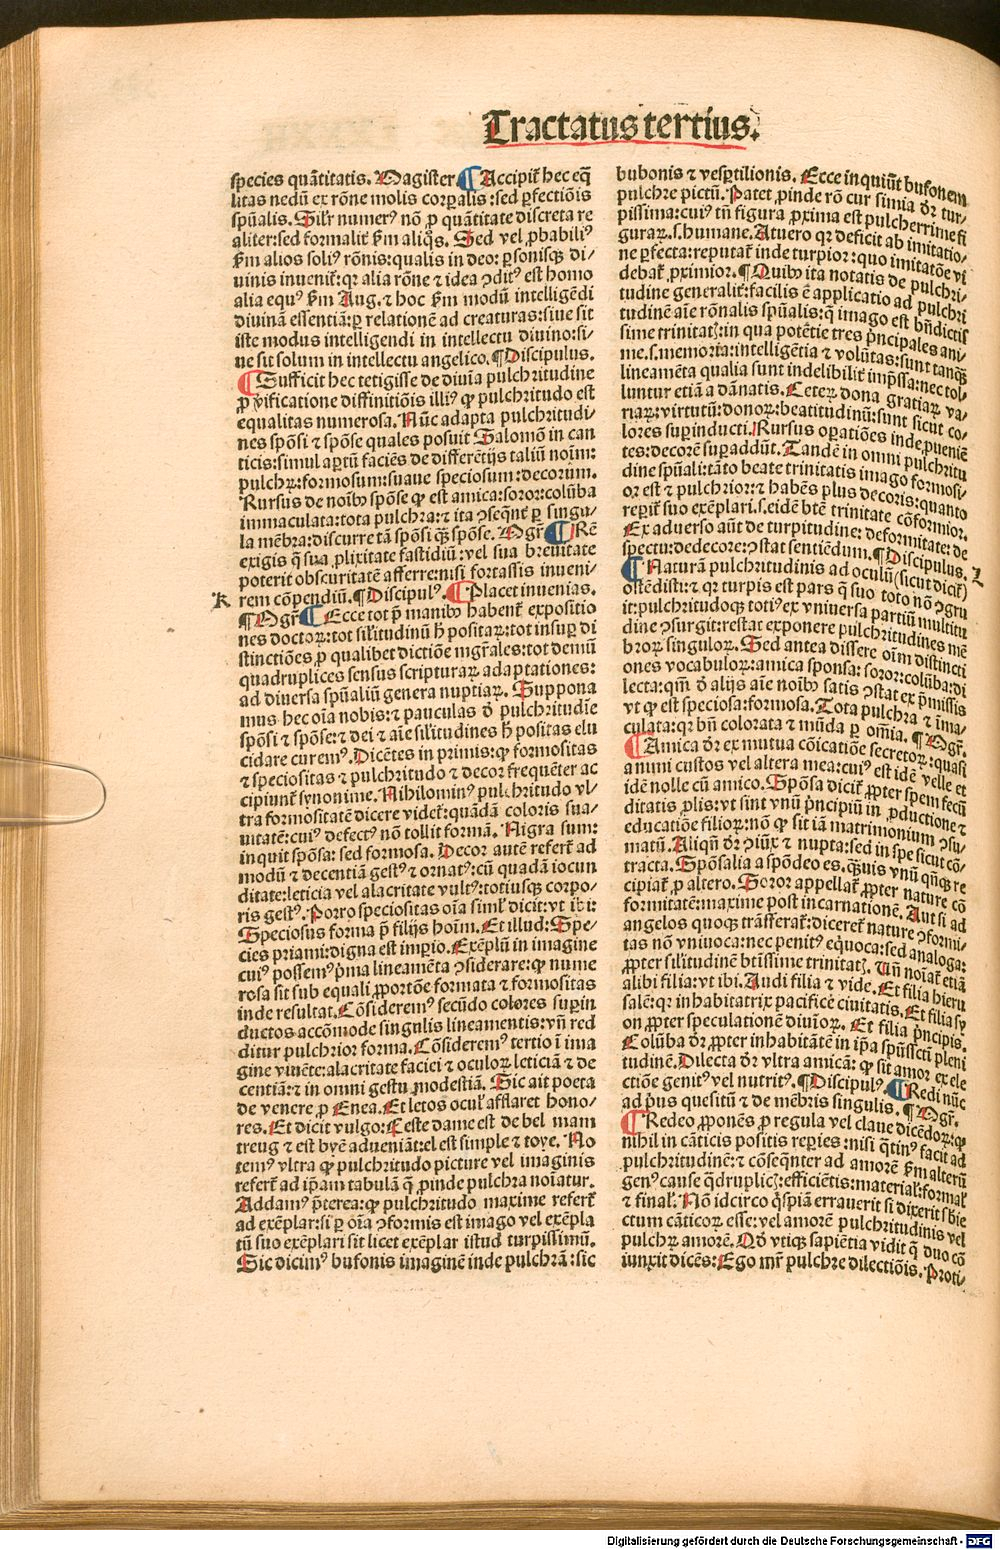 Tractatus tertius.
species quãtitatis. Magister ¶ Accipit̃ hec eq̃
litas nedũ ex rõne molis corꝑalis: sed ꝑfectiõis
spũalis. Sil'r numerꝰ nõ ꝓ quãtitate discreta re
aliter: sed formalit̃ ẜm aliq̃s. Sed vel ꝓbabiliꝰ
ẜm alios soliꝰ rõnis: qualis in deo: ꝑsonisqꝫ di/
uinis inuenit̃: qꝛ alia rõne ⁊ idea ↄditꝰ est homo
alia equꝰ ẜm Aug. ⁊ hoc ẜm modũ intelligẽdi
diuinã essentiã: ꝑ relationẽ ad creaturas: siue sit
iste modus intelligendi in intellectu diuino: si/
ue sit solum in intellectu angelico. ¶ Discipulus.
¶ Sufficit hec tetigisse de diuĩa pulchritudine
ꝓ vificatione diffinitiõis illiꝰ ꝙ pulchritudo est
equalitas numerosa. Nũc adapta pulchritudi/
nes spõsi ⁊ spõse quales posuit Salomõ in can
ticis: simul aꝑtũ faciẽs de differẽtijs taliũ noĩm:
pulchꝝ: formosum: suaue speciosum: decorum.
Rursus de noĩbꝰ spõse ꝙ est amica: soror: colũba
immaculata: tota pulchra: ⁊ ita ↄseq̃nt̃ ꝑ singu/
la mẽbra: discurre tã spõsi qꝫ̃ spõse. Mgr̃ ¶ Rẽ
exigis q̃ sua ꝓlixitate fastidiũ: vel sua breuitate
poterit obscuritatẽ afferre: nisi fortassis inueni/
K rem cõpendiũ. ¶ Discipulꝰ. ¶ Placet inuenias.
¶ Mgr̃ ¶ Ecce tot p̃ manibꝰ habent̃ expositio
nes doctoꝝ: tot sil'itudinũ h̃ positaꝝ: tot insuꝑ di
stinctiões ꝓ qualibet dictiõe mgr̃ales: tot demũ
quadruplices sensus scripturaꝝ adaptationes:
ad diuersa spũaliũ genera nuptiaꝝ. Suppona
mus hec oĩa nobis: ⁊ pauculas ð pulchritudĩe
spõsi ⁊ spõse: ⁊ dei ⁊ aĩe sil'itudines h̃ positas elu
cidare curemꝰ. Dicẽtes in primis: ꝙ formositas
⁊ speciositas ⁊ pulchritudo ⁊ decor frequẽter ac
cipiunt̃ synonime. Nihilominꝰ pulchritudo vl/
tra formositatẽ dicere videt̃: quãdã coloris sua/
uitatẽ: cuiꝰ defectꝰ nõ tollit formã. Nigra sum:
inquit spõsa: sed formosa. Decor autẽ refert̃ ad
modũ ⁊ decentiã gestꝰ ⁊ ornatꝰ: cũ quadã iocun
ditate: leticia vel alacritate vultꝰ: totiusqꝫ corpo/
ris gestꝰ. Porro speciositas oĩa siml' dicit: vt ibi:
Speciosus forma p̃ filijs hoĩm. Et illud: Spe/
cies priami: digna est imꝑio. Exẽplũ in imagine
cuiꝰ possemꝰ p̃ma lineamẽta ↄsiderare: ꝙ nume
rosa sit sub equali ꝓportõe formata ⁊ formositas
inde resultat. Cõsideremꝰ secũdo colores suꝑin
ductos accõmode singulis lineamentis: vñ red
ditur pulchrior forma. Cõsideremꝰ tertio ĩ ima
gine viuẽte: alacritate faciei ⁊ oculoꝝ leticiã ⁊ de
centiã: ⁊ in omni gestu modestiã. Sic ait poeta
de venere ꝓ Enea. Et letos ocul' afflaret hono/
res. Et dicit vulgo: Ceste dame est de bel mam
treug ⁊ est byẽ adueniãt: el est simple ⁊ toye. No
temꝰ vltra ꝙ pulchritudo picture vel imaginis
refert̃ ad ip̃am tabulã q̃ pinde pulchra noĩatur.
Addamꝰ p̃terea: ꝙ pulchritudo maxime refert̃
ad exẽplar: si ꝑ oĩa ↄformis est imago vel exẽpla
tũ suo exẽplari sit licet exẽplar istud turpissimũ.
Sic dicimꝰ bufonis imaginẽ inde pulchrã: sic
bubonis ⁊ vesꝑtilionis. Ecce inquiũt bufonem
pulchre pictũ. Patet ꝓinde rõ cur simia dr̃ tur/
pissima: cuiꝰ tñ figura ꝓxima est pulcherrime fi
guraꝝ .s. humane. At vero qꝛ deficit ab imitatio/
ne ꝑfecta: reputat̃ inde turpior: quo imitatõe vi
debat̃ ꝓximior. ¶ Quibꝰ ita notatis de pulchri/
tudine generalit̃: facilis ẽ applicatio ad pulchri
tudinẽ aĩe rõnalis spũalis: q̃ imago est bñdictis
sime trinitatꝫ: in qua potẽtie tres p̃ncipales ani/
me .s. memoria: intelligẽtia ⁊ volũtas: sunt tanqꝫ
lineamẽta qualia sunt indelibilit̃ imp̃ssa: nec tol/
luntur etiã a dãnatis. Ceteꝝ dona gratiaꝝ va/
riaꝝ: virtutũ: donoꝝ: beatitudinũ: sunt sicut co/
lores suꝑinducti. Rursus oꝑatiões inde ꝓueniẽ
tes: decorẽ suꝑaddũt. Tandẽ in omni pulchritu
dine spũali: tãto beate trinitatis imago formosi/
or est ⁊ pulchrior: ⁊ habẽs plus decoris: quanto
reꝑit̃ suo exẽplari .s. eidẽ btẽ trinitate cõformior.
Ex aduerso aũt de turpitudine: deformitate: de
spectu: dedecore: ↄstat sentiẽdum. ¶ Discipulus.
¶ Naturã pulchritudinis ad oculũ (sicut dicit̃) L
ostẽdisti: ⁊ qꝛ turpis est pars q̃ suo toto nõ ↄgru
it: pulchritudoqꝫ totiꝰ ex vniuersa partiũ multitu
dine ↄsurgit: restat exponere pulchritudines mẽ
broꝝ singuloꝝ. Sed antea dissere oĩm distincti
ones vocabuloꝝ: amica sponsa: soror: colũba: di
lecta: qm̃ ð alijs aĩe noĩbꝰ satis ↄstat ex p̃missis
vt ꝙ est speciosa: formosa. Tota pulchra ⁊ ĩma/
culata: qꝛ bñ colorata ⁊ mũda ꝑ om̃ia. ¶ Mgr̃.
¶ Amica dr̃ ex mutua cõicatiõe secretoꝝ: quasi
animi custos vel altera mea: cuiꝰ est idẽ velle et
idẽ nolle cũ amico. Spõsa dicit̃ ꝓpter spem fecũ
ditatis ꝓlis: vt sint vnũ p̃ncipiũ in ꝓductione ⁊
educatiõe filioꝝ: nõ ꝙ sit iã matrimonium ↄsu/
matũ. Aliqñ dr̃ ↄiũx ⁊ nupta: sed in spe sicut cõ/
tracta. Spõsalia a spõdeo es. qꝫ̃uis vnũ qñqꝫ re
cipiat̃ ꝓ altero. Soror appellat̃ ꝓpter nature cõ
formitatẽ: maxime post incarnationẽ. Aut si ad
angelos quoqꝫ trãsferat̃: diceret̃ nature ↄformi/
tas nõ vniuoca: nec penitꝰ equoca: sed analoga:
ꝓpter sil'itudinẽ btissime trinitatꝫ. Vñ noĩat̃ etiã
alibi filia: vt ibi. Audi filia ⁊ vide. Et filia hieru
salẽ: qꝛ inhabitatrix pacifice ciuitatis. Et filia sy
on ꝓpter speculationẽ diuĩoꝝ. Et filia p̃ncipis.
Colũba dr̃ ꝓpter inhabitãtẽ in ip̃a spũssctĩ pleni
tudinẽ. Dilecta dr̃ vltra amicã: ꝙ sit amor ex ele
ctiõe genitꝰ vel nutritꝰ. ¶ Discipulꝰ. ¶ Redi nũc
ad p̃us quesitũ ⁊ de mẽbris singulis. ¶ Mgr̃.
¶ Redeo ꝓponẽs ꝓ regula vel claue dicẽdoꝝ: ꝙ
nihil in cãticis positis reꝑies: nisi q̃tinꝰ facit ad
pulchritudinẽ: ⁊ cõseq̃nter ad amorẽ ẜm alterũ
genꝰ cause q̃druplicꝫ: efficiẽtis: material': formal'
⁊ final'. Nõ idcirco q̃spiã errauerit si dixerit sbie
ctum cãticoꝝ esse: vel amorẽ pulchritudinis vel
pulchꝝ amorẽ. Qð vtiqꝫ sapiẽtia vidit q̃ duo cõ
iunxit dicẽs: Ego mr̃ pulchre dilectiõis. Proti/
Digitalisierung gefördert durch die Deutsche Forschungsgemeinschaft - DFG